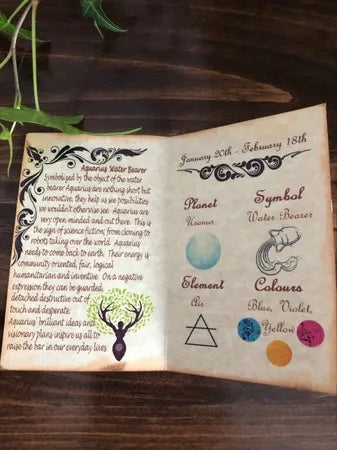 Aquarius Water Bearer
Symbolized by the object of the water
bearer Aquarius are nothing short but
innovative, they help us see possibilities
we wouldn't otherwise see. Aquarius are
very open minded and out there. This is
the sign of science fiction; from cloning to
robots taking over the world. Aquarius
needs to come back to earth. Their energy is
community oriented, fair, logical
humanitarian and inventive. On a negative
expression they can be guarded,
detached destructive out of
touch and desperate.
Aquarius' brilliant ideas and
visionary plans inspire us all to
raise the bar in our everyday lives.
January 20th - February 18th
Planet
Uranus
Symbol
Water Bearer
Element
Air
Colours
Blue, Violet,
Yellow